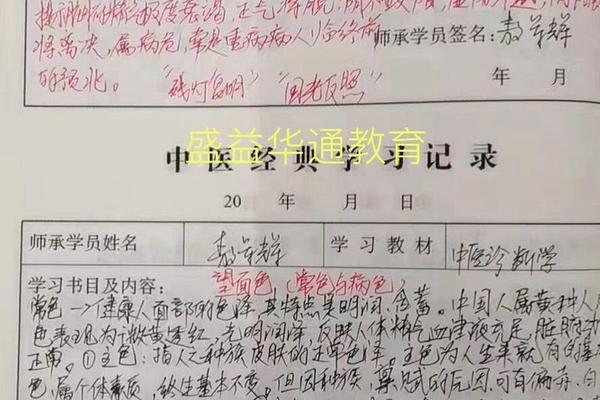 提示脏腑精气极度衰竭,正气将脱,阴不敛阳,虚阳外越,阴阳
将离决,属病危,常是重病病人临终前
师承学员签名:
的预兆。“残灯复明”“回光反照”
年 月
盛益华通教育
中医经典学习记录
20 年 月 日
师承学员姓名 学习教材 中医诊断学
学习书目及内容: 望面色,(常色与病色)
常色→健康人面部的色泽,其特点是明润、含蓄。中国人属黄种人
色表现为微黄透红,光明润泽,反映人体精气血津液充足,脏腑功
正常。①主色:指人之种族皮肤的正常色泽。主色为人生来就有的基本
色,属个体素质,终生基本不变。但因种族,禀赋的原因,可有偏赤、白